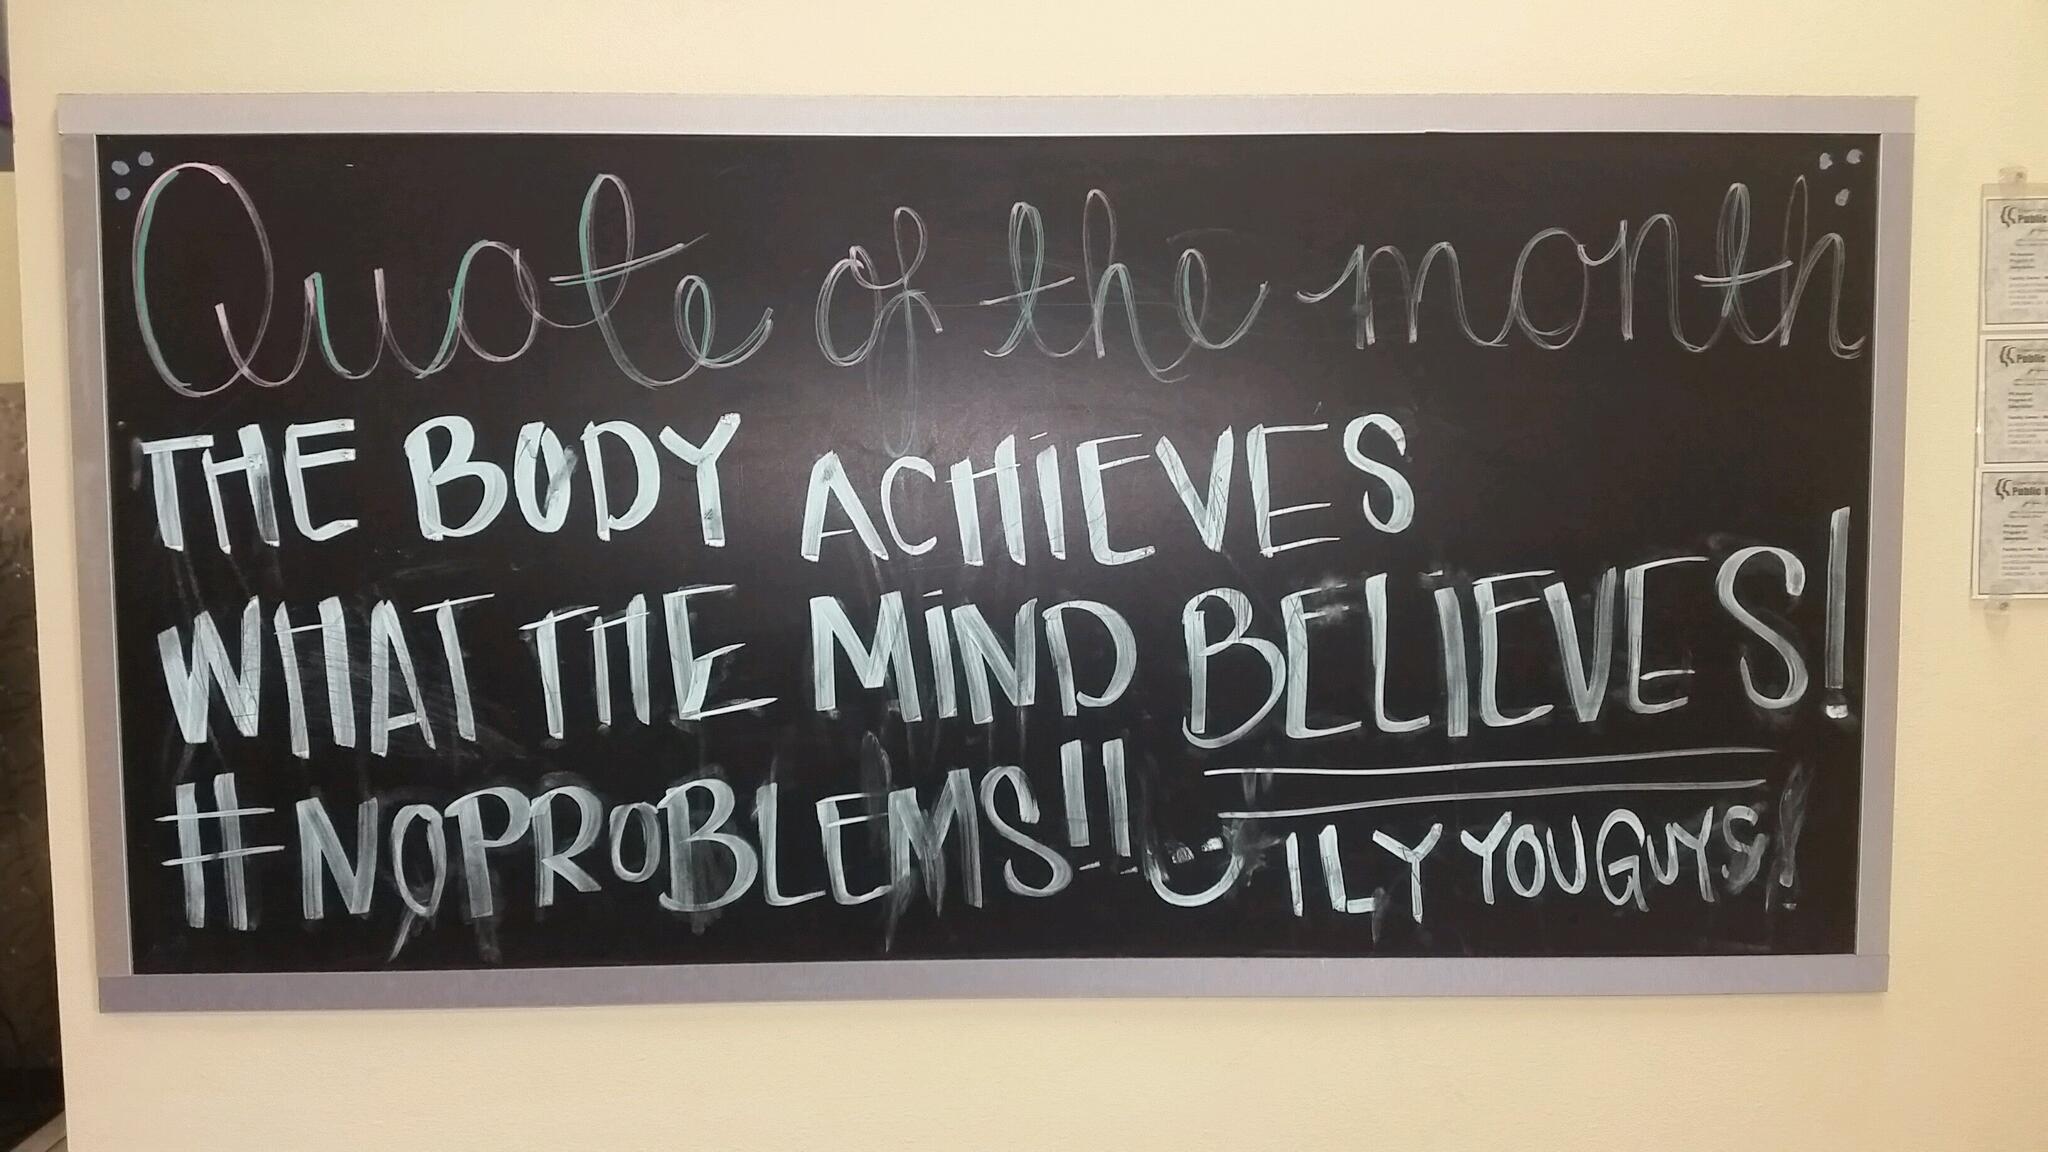 Quote of the month
THE BODY ACHIEVES
WHAT THE MIND BELIEVES!
#NOPROBLEMS!! ILY YOU GUYS!
Public
Public
Public